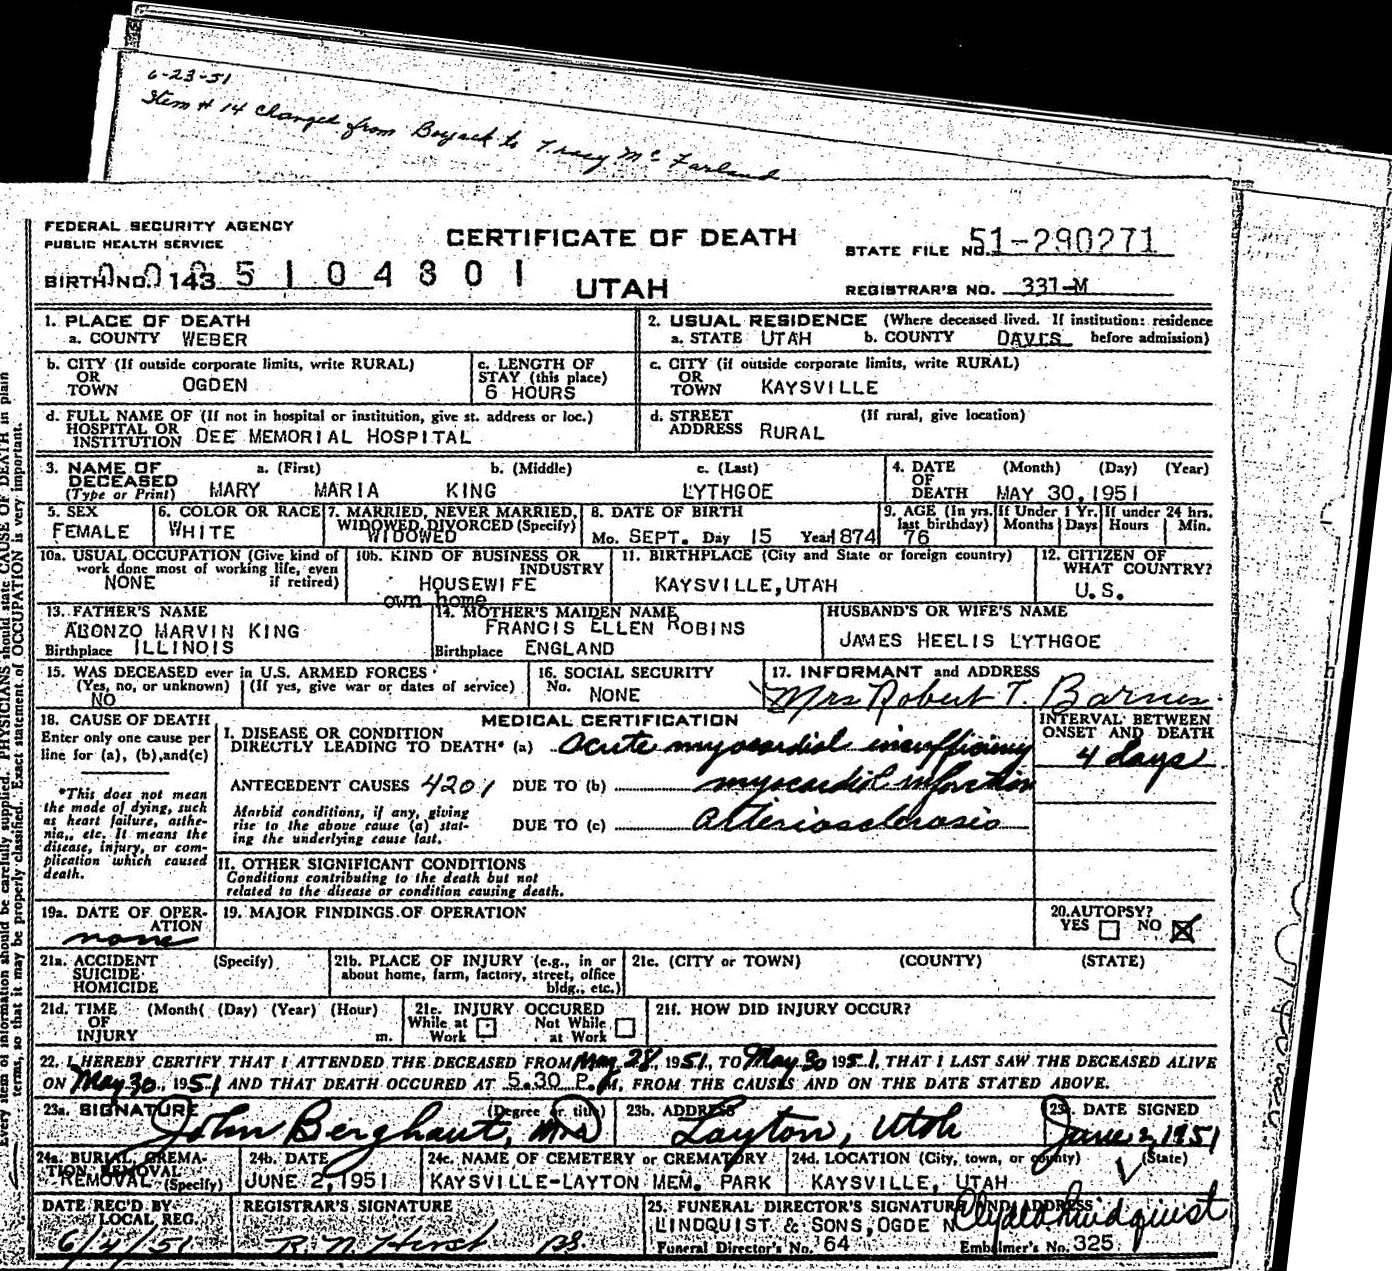 6-23-51
Item # 14 Changed from Boyack to Tracy McFarland
FEDERAL SECURITY AGENCY
PUBLIC HEALTH SERVICE
CERTIFICATE OF DEATH
STATE FILE NO. 51-290271
BIRTH NO. 143 5104801
UTAH
REGISTRAR'S NO. 337-M
1. PLACE OF DEATH
a. COUNTY WEBER
2. USUAL RESIDENCE (Where deceased lived. If institution: residence
a. STATE UTAH b. COUNTY DAVIS before admission)
b. CITY (If outside corporate limits, write RURAL)
OR
TOWN OGDEN
c. LENGTH OF
STAY (this place)
6 HOURS
c. CITY (if outside corporate limits, write RURAL)
OR
TOWN KAYSVILLE
d. FULL NAME OF (If not in hospital or institution, give st. address or loc.)
HOSPITAL OR
INSTITUTION DEE MEMORIAL HOSPITAL
d. STREET (If rural, give location)
ADDRESS RURAL
3. NAME OF a. (First) b. (Middle) c. (Last)
DECEASED
(Type or Print) MARY MARIA KING LYTHGOE
4. DATE (Month) (Day) (Year)
OF
DEATH MAY 30, 1951
5. SEX
FEMALE
6. COLOR OR RACE
WHITE
7. MARRIED, NEVER MARRIED,
WIDOWED, DIVORCED (Specify)
WIDOWED
8. DATE OF BIRTH
Mo. SEPT. Day 15 Year 1874
9. AGE (In yrs.
last birthday)
76
If Under 1 Yr.
Months Days
If under 24 hrs.
Hours Min.
10a. USUAL OCCUPATION (Give kind of
work done most of working life, even
NONE if retired)
10b. KIND OF BUSINESS OR
INDUSTRY
HOUSEWIFE
own home
11. BIRTHPLACE (City and State or foreign country)
KAYSVILLE, UTAH
12. CITIZEN OF
WHAT COUNTRY?
U.S.
13. FATHER'S NAME
ALONZO MARVIN KING
Birthplace ILLINOIS
14. MOTHER'S MAIDEN NAME
FRANCIS ELLEN ROBINS
Birthplace ENGLAND
HUSBAND'S OR WIFE'S NAME
JAMES HEELIS LYTHGOE
15. WAS DECEASED ever in U.S. ARMED FORCES
(Yes, no, or unknown) (If yes, give war or dates of service)
NO
16. SOCIAL SECURITY
No. NONE
17. INFORMANT and ADDRESS
Mrs Robert T. Barnes
18. CAUSE OF DEATH
Enter only one cause per
line for (a), (b), and (c)
*This does not mean
the mode of dying, such
as heart failure, asthe-
nia,, etc. It means the
disease, injury, or com-
plication which caused
death.
MEDICAL CERTIFICATION
I. DISEASE OR CONDITION
DIRECTLY LEADING TO DEATH* (a) acute myocardial insufficiency
ANTECEDENT CAUSES 4201 DUE TO (b) myocardial infarction
Morbid conditions, if any, giving
rise to the above cause (a) stat-
ing the underlying cause last.
DUE TO (c) arteriosclerosis
INTERVAL BETWEEN
ONSET AND DEATH
4 days
II. OTHER SIGNIFICANT CONDITIONS
Conditions contributing to the death but not
related to the disease or condition causing death.
19a. DATE OF OPER-
ATION
none
19. MAJOR FINDINGS OF OPERATION
20. AUTOPSY?
YES NO
21a. ACCIDENT (Specify)
SUICIDE
HOMICIDE
21b. PLACE OF INJURY (e.g., in or
about home, farm, factory, street, office
bldg., etc.)
21c. (CITY or TOWN) (COUNTY) (STATE)
21d. TIME (Month( (Day) (Year) (Hour)
OF
INJURY m.
21e. INJURY OCCURED
While at Not While
Work at Work
21f. HOW DID INJURY OCCUR?
22. I HEREBY CERTIFY THAT I ATTENDED THE DECEASED FROM May 28, 1951, TO May 30 1951, THAT I LAST SAW THE DECEASED ALIVE
ON May 30, 1951 AND THAT DEATH OCCURED AT 5.30 P.M, FROM THE CAUSES AND ON THE DATE STATED ABOVE.
23a. SIGNATURE (Degree or title)
John Berghaut, M.D.
23b. ADDRESS
Layton, Utah
23c. DATE SIGNED
June 2, 1951
24a. BURIAL, CREMA-
TION, REMOVAL
REMOVAL (Specify)
24b. DATE
JUNE 2, 1951
24c. NAME OF CEMETERY or CREMATORY
KAYSVILLE-LAYTON MEM. PARK
24d. LOCATION (City, town, or county) (State)
KAYSVILLE, UTAH
DATE REC'D BY
LOCAL REG.
REGISTRAR'S SIGNATURE
25. FUNERAL DIRECTOR'S SIGNATURE AND ADDRESS
LINDQUIST & SONS, OGDEN Clyde Lindquist
Funeral Director's No. 64 Embalmer's No. 325
Every item of information should be carefully supplied. PHYSICIANS should state CAUSE OF DEATH in plain
terms, so that it may be properly classified. Exact statement of OCCUPATION is very important.